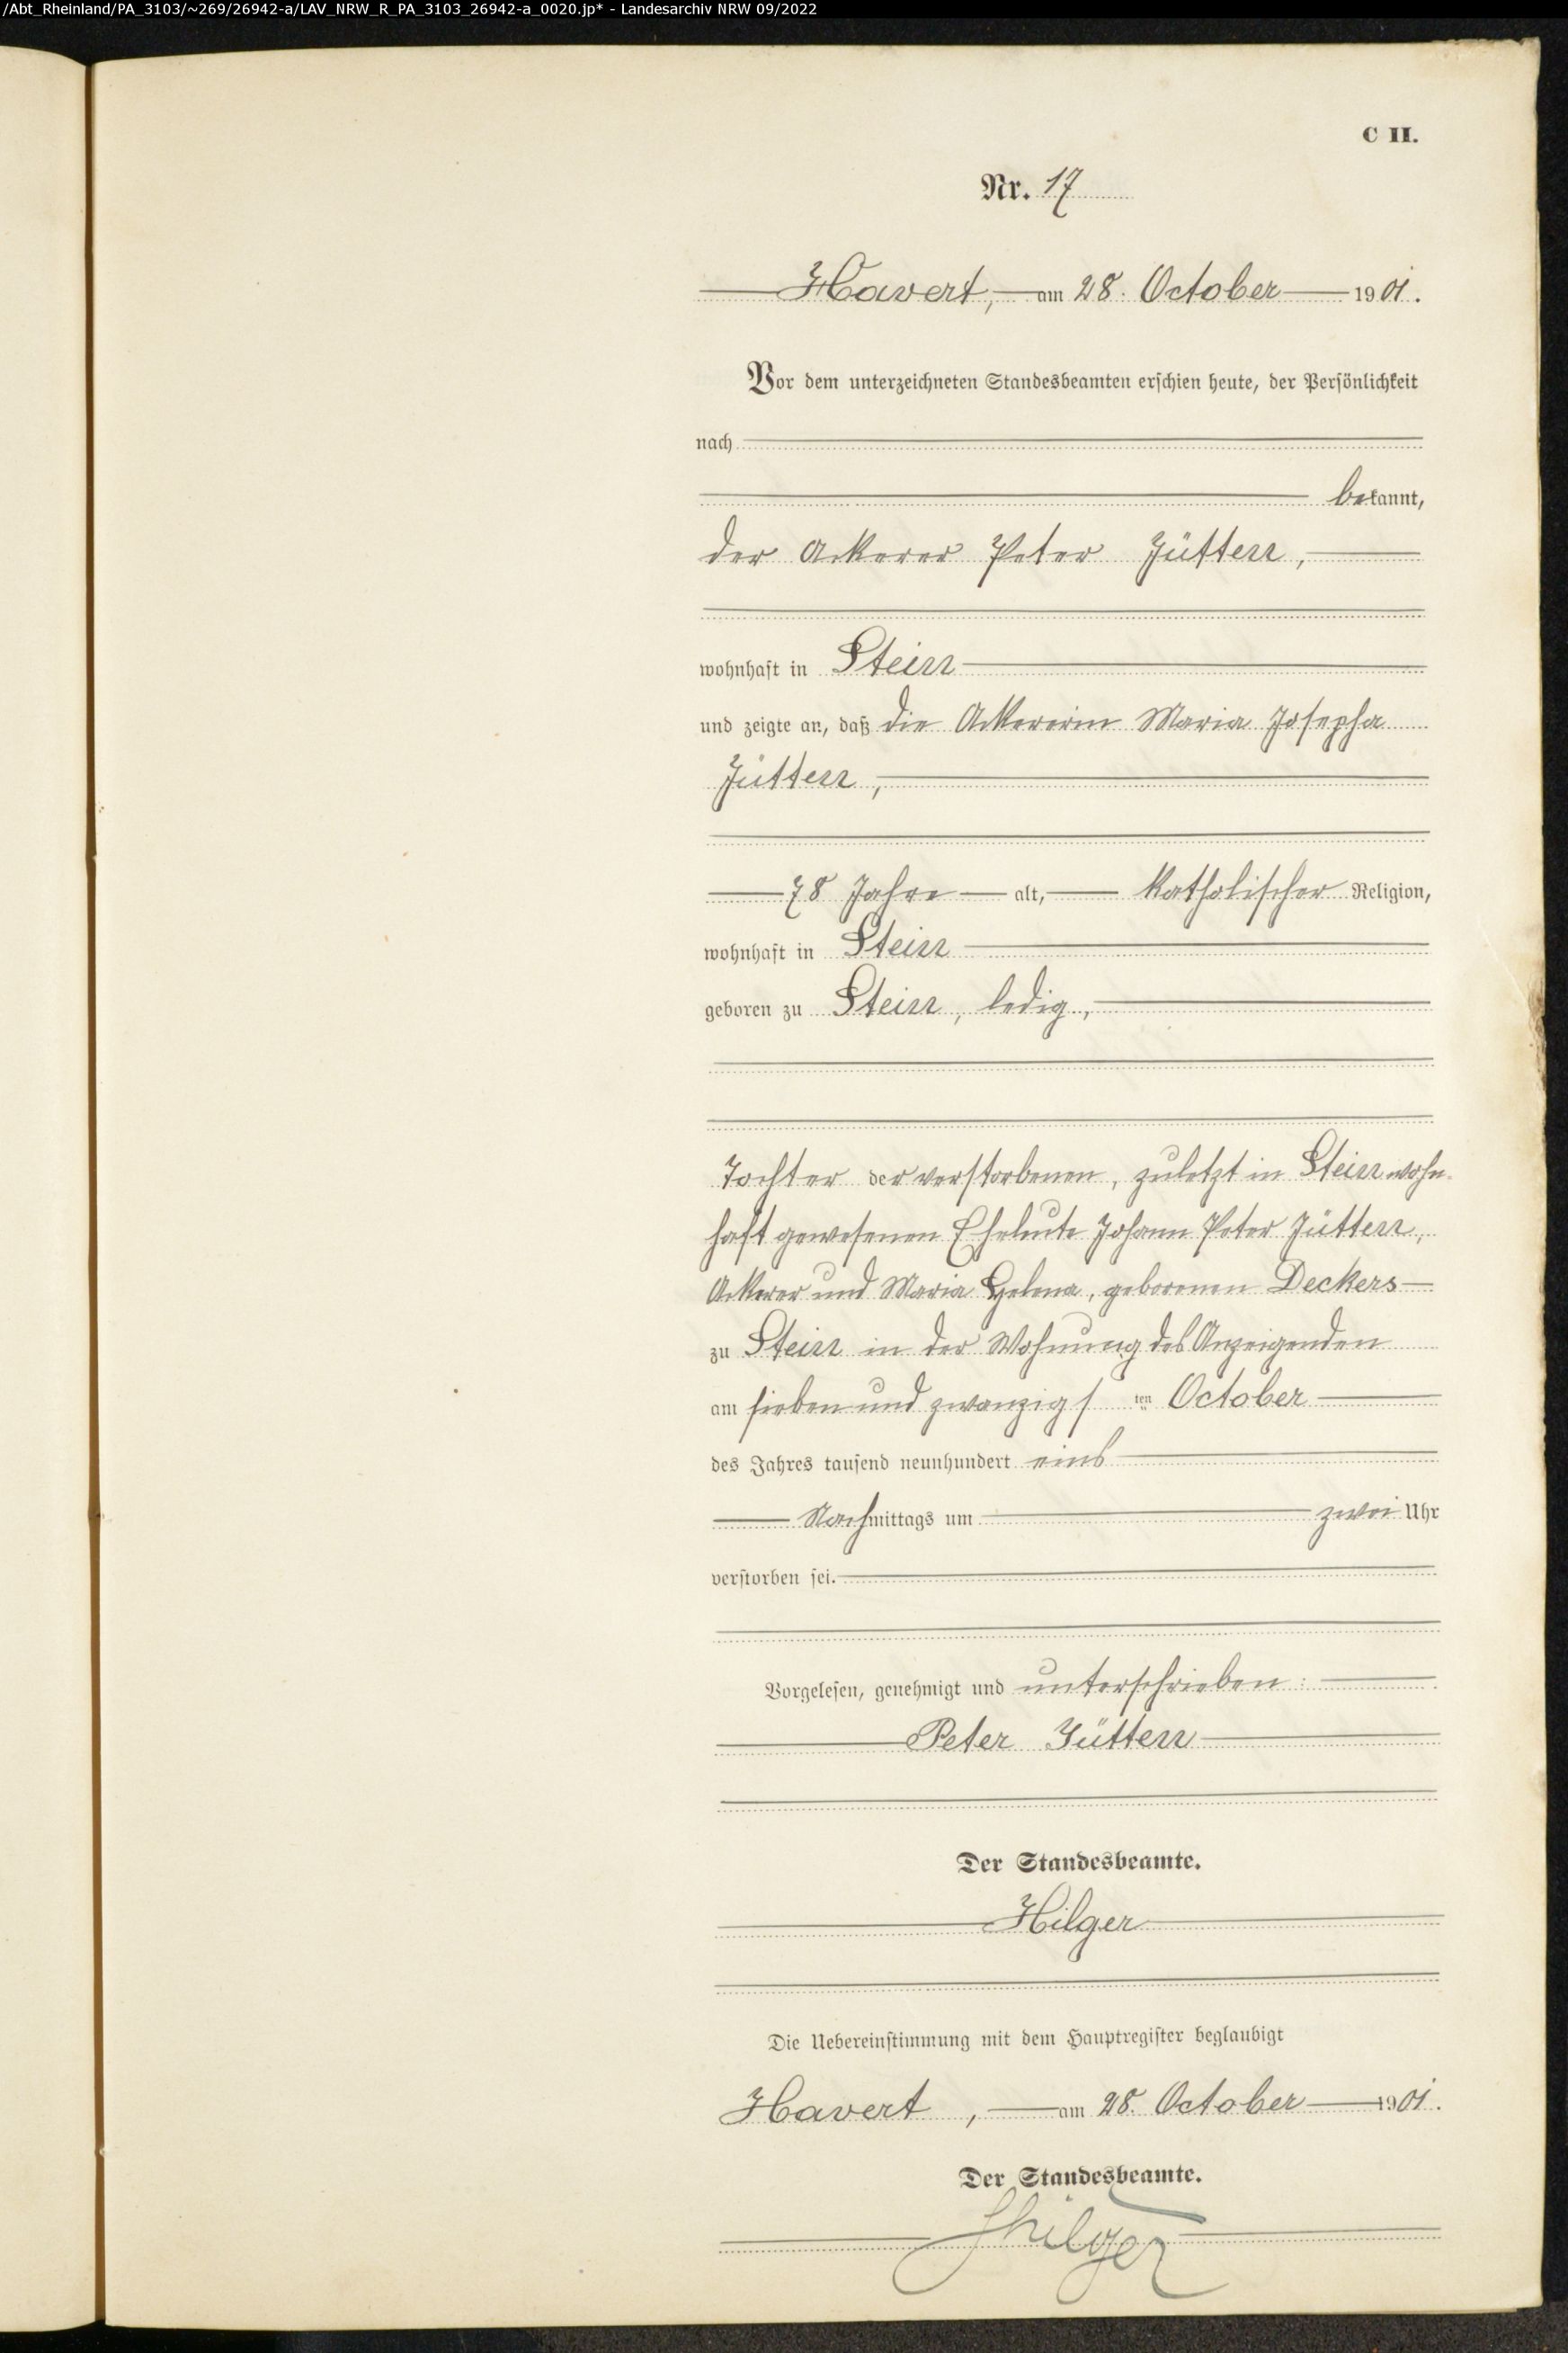 /Abt_Rheinland/PA_3103/~269/26942-a/LAV_NRW_R_PA_3103_26942-a_0020.jp* - Landesarchiv NRW 09/2022
C II.
Nr. 17
Havert, am 28. October 1901.
Vor dem unterzeichneten Standesbeamten erschien heute, der Persönlichkeit
nach
bekannt,
der Ackerer Peter Jütten,
wohnhaft in Stein
und zeigte an, daß die Ackererin Maria Josepha
Jütten,
78 Jahre alt, katholischer Religion,
wohnhaft in Stein
geboren zu Stein, ledig,
Tochter der verstorbenen, zuletzt in Stein wohn-
haft gewesenen Eheleute Johann Peter Jütten,
Ackerer und Maria Helena, geborenen Deckers
zu Stein in der Wohnung des Anzeigenden
am sieben und zwanzigsten October
des Jahres tausend neunhundert eins
Nachmittags um zwei Uhr
verstorben sei.
Vorgelesen, genehmigt und unterschrieben:
Peter Jütten
Der Standesbeamte.
Hilger
Die Uebereinstimmung mit dem Hauptregister beglaubigt
Havert, am 28. October 1901.
Der Standesbeamte.
Hilger